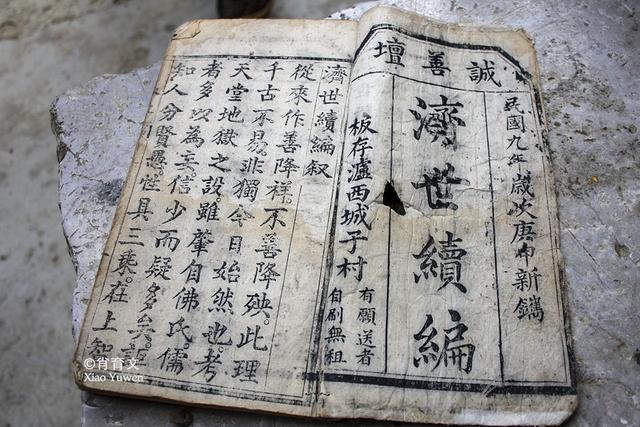 誠善壇
民國九年歲次庚申新鐫
濟世續編
板存瀘西城子村
有願送者
自刷無租
濟世續編叙
從來作善降祥不善降殃此理
千古不易非獨今日始然也考
天堂地獄之設雖肇自佛氏儒
者多次為妄信少而疑多矣
知人分賢愚性具三乘在上知
©肖育文
Xiao Yuwen